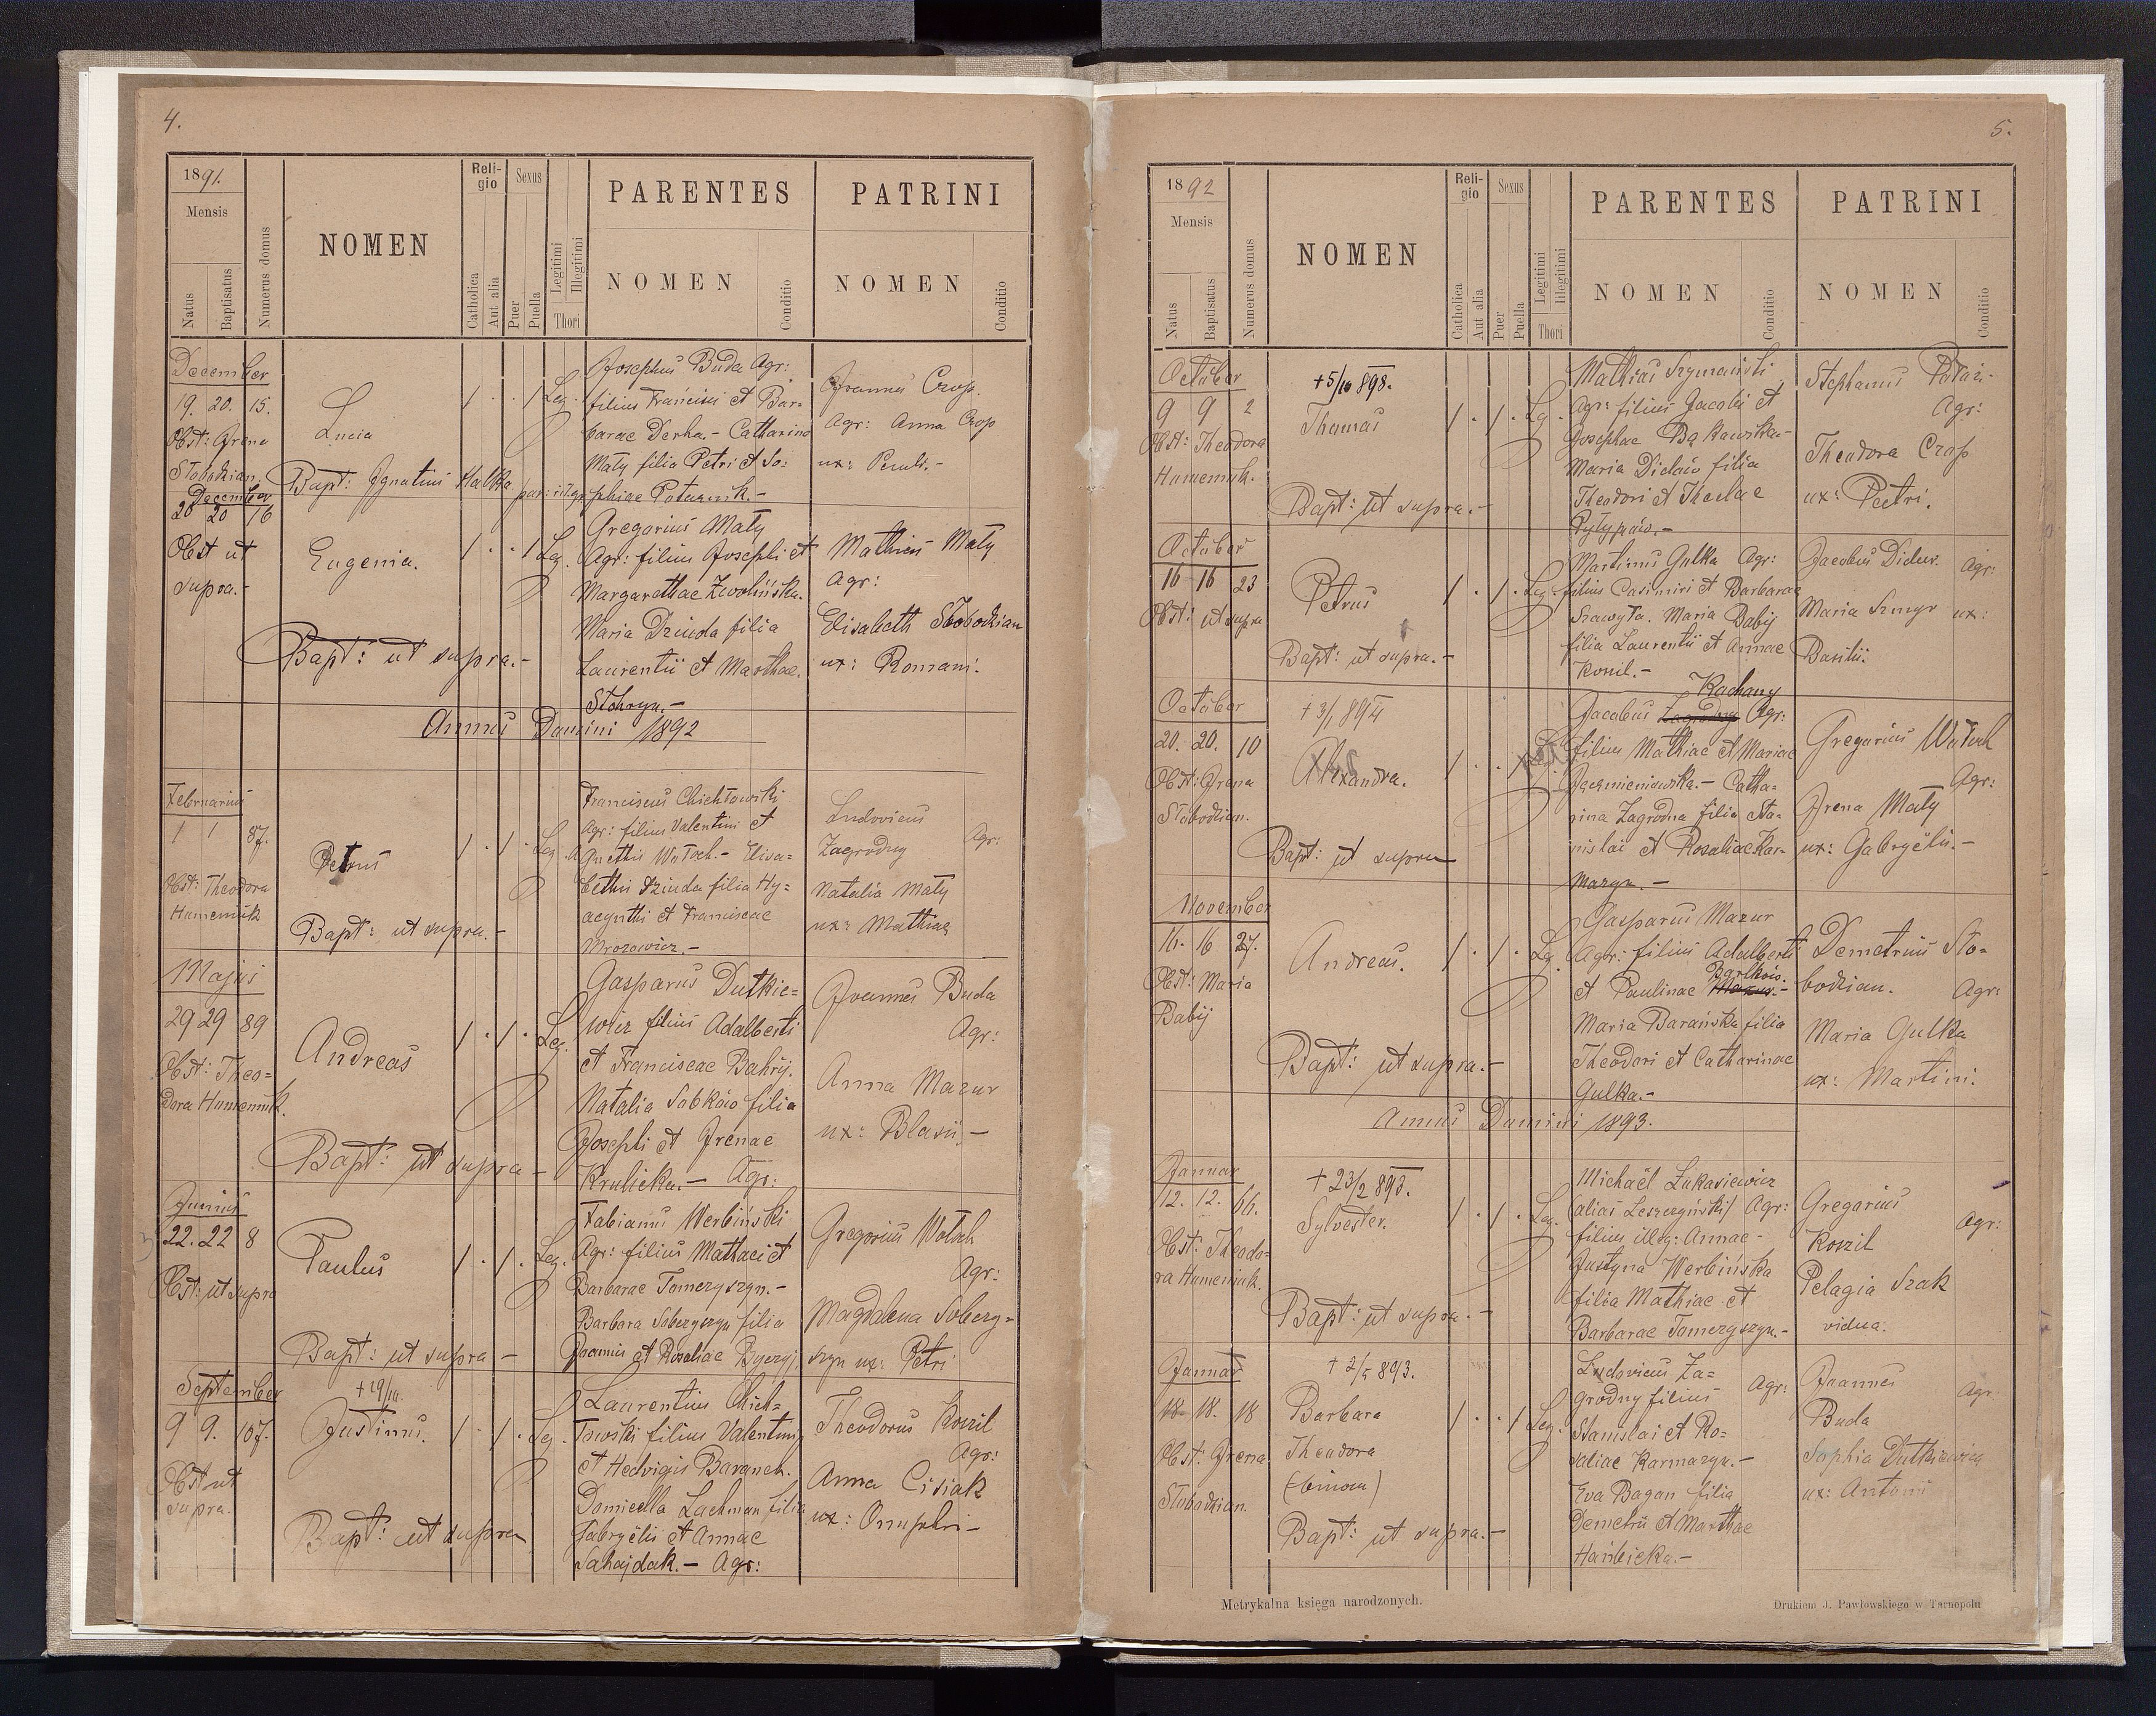 4.
1891.
Mensis
Natus
Baptisatus
Numerus domus
NOMEN
Religio
Catholica
Aut alia
Sexus
Puer
Puella
Legitimi
Illegitimi
Thori
PARENTES
NOMEN
Conditio
PATRINI
NOMEN
Conditio
December
19. 20. 15.
Obst: Irena
Slobodzian.
Lucia
1 . . 1 Leg.
Bapt: Ignatius Halka par: rit. gr.
Josephus Buda Agr:
filius Francisci et Bar-
barae Derha.- Catharina
Mały filia Petri et So-
phiae Poturnak.-
Joannes Crop.
Agr: Anna Crop
ux: Pauli.-
December
20 20 16
Obst ut
supra.-
Eugenia.
1 . . 1 Leg.
Bapt: ut supra.-
Gregorius Mały
Agr: filius Josephi et
Margarethae Zwolińska.
Maria Dziuda filia
Laurentii et Marthae.
Stohryn.-
Mathias Mały
Agr:
Elisabeth Slobodzian
ux: Romani.
Annus Domini 1892
Februarius
1 1 87.
Obst: Theodora
Humeniuk
Petrus
1 . 1 . Leg.
Bapt: ut supra.-
Franciscus Chichłowski
Agr: filius Valentini et
Agnethis Wołoch.- Elisa=
bethis Dziuda filia Hy=
acynthi et Franciscae
Mrozowicz.-
Ludovicus
Zagrodny Agr:
Natalia Mały
ux: Mathiae
Majus
29 29 89
Obst: Theo=
dora Humeniuk.
Andreas
1 . 1 . Leg.
Bapt: ut supra -
Gasparus Dutkie=
wicz filius Adalberti
et Franciscae Bahrij.
Natalia Sobków filia
Josephi et Irenae
Krulicka.- Agr:
Joannes Buda
Agr:
Anna Mazur
ux: Blasii.-
Junius
22. 22 8
Obst: ut supra
Paulus
1 . 1 . Leg.
Bapt: ut supra -
Fabianus Werbiński
Agr: filius Mathaei et
Barbarae Tomeryszyn.-
Barbara Soberyszyn filia
Joannis et Rosaliae
Gregorius Wołoch
Agr:
Magdalena Sobery=
szyn ux: Petri
September
9 9. 107.
Obst ut
supra.
+ 29/10.
Justinus.
1 . 1 . Leg.
Bapt: ut supra
Laurentius Chich=
łowski filius Valentini
et Hedvigis Baranek.
Domicella Lachman filia
Gabryëlis et Annae
Sahajdak.- Agr:
Theodorus Kozil
Agr:
Anna Cisiak
ux: Onuphri-
5.
1892
Mensis
Natus
Baptisatus
Numerus domus
NOMEN
Religio
Catholica
Aut alia
Sexus
Puer
Puella
Legitimi
Illegitimi
Thori
PARENTES
NOMEN
Conditio
PATRINI
NOMEN
Conditio
October
9 9 2
Obst: Theodora
Humeniuk.
+ 5/10 898.
Thomas
1 . 1 . Leg.
Bapt: ut supra.-
Mathias Szymański
Agr: filius Jacobi et
Josephae Bąkowska-
Maria Didaiò filia
Theodori et Theclae
Stephanus
Agr:
Theodora Crop
ux: Petri.
October
16 16 23
Obst: ut supra
Petrus
1 . 1 . Leg.
Bapt: ut supra.-
Martinus Gulka Agr:
filius Casimiri et Barbarae
Szawyła. Maria Babij
filia Laurentii et Annae
Konil.-
Jacobus Didur. Agr:
Maria Szmyr ux:
Basilii.
October
20. 20. 10
Obst: Irena
Slobodzian.
+ 3/1 894
Alexandra.
1 . . 1 Leg.
Bapt: ut supra
Kachany
Jacobus Zagrodny Agr:
filius Mathiae et Mariae
Jaczmieniowska.- Catha-
rina Zagrodna filia Sta-
nislai et Rosaliae Kar-
mazyn.-
Gregorius Wołoch
Agr:
Irena Mały
ux: Gabryëlis.-
November
16. 16 27.
Obst: Maria
Babij
Andreas.
1 . 1 . Leg.
Bapt: ut supra.-
Gasparus Mazur
Agr: filius Adalberti
et Paulinae Mazur.-
Maria Barańska filia
Theodori et Catharinae
Gulka.-
Demetrius Slo-
bodzian. Agr:
Maria Gulka
ux: Martini.
Annus Domini 1893.
Januar
12. 12. 66.
Obst: Theodo-
ra Humeniuk.
+ 23/2 893.
Sylvester.
1 . 1 . Leg.
Bapt: ut supra.-
Michaël Łukasiewicz
(alias Leszczyński) Agr:
filius illeg: Annae-
Justyna Werbińska
filia Mathiae et
Barbarae Tomeryszyn.-
Gregorius
Kozil Agr:
Pelagia Szak
vidua.
Januar
18. 18. 18
Obst. Irena
Slobodzian.
+ 2/5 893.
Barbara
Theodora
(binom)
1 . . 1 Leg.
Bapt: ut supra.-
Ludovicus Za=
grodny filius Agr:
Stanislai et Ro=
saliae Karmazyn.-
Eva Bagan filia
Demetrii et Marthae
Hańbicka.-
Joannes Agr.
Buda
Sophia Dutkiewicz
ux: Antonii
Metrykalna księga narodzonych.
Drukiem J. Pawłowskiego w Tarnopolu